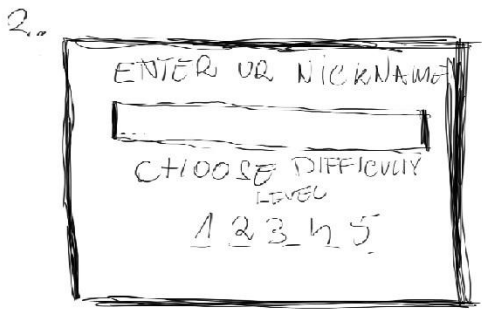 2.
ENTER UR NICKNAME
CHOOSE DIFFICULTY
LEVEL
1 2 3 4 5